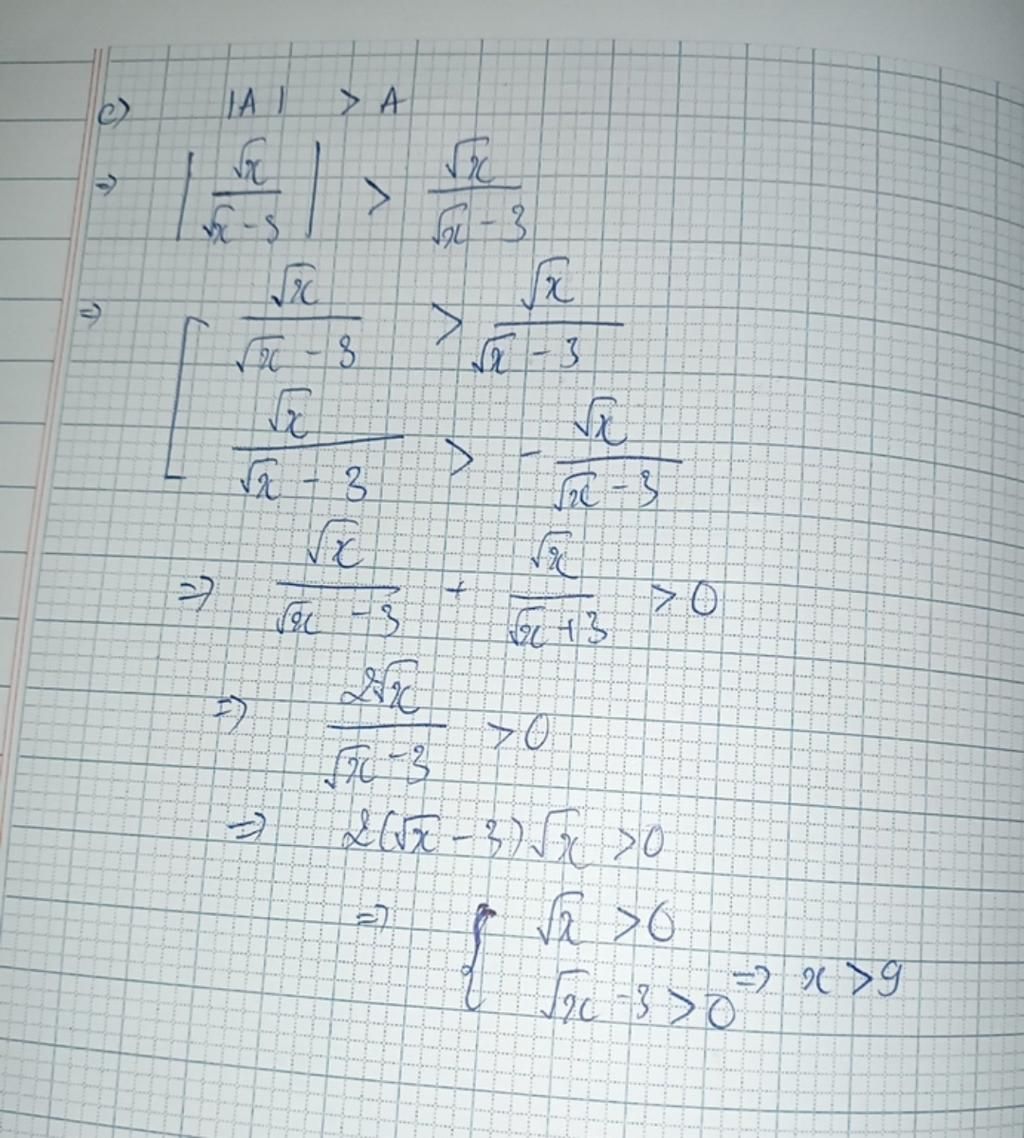 c) |A| > A
⇒ |√x / (√x - 3)| > √x / (√x - 3)
⇒ [ √x / (√x - 3) > √x / (√x - 3)
√x / (√x - 3) > - √x / (√x - 3)
⇒ √x / (√x - 3) + √x / (√x + 3) > 0
⇒ 2√x / (√x - 3) > 0
⇒ 2(√x - 3)√x > 0
⇒ { √x > 0
√x - 3 > 0 ⇒ x > 9